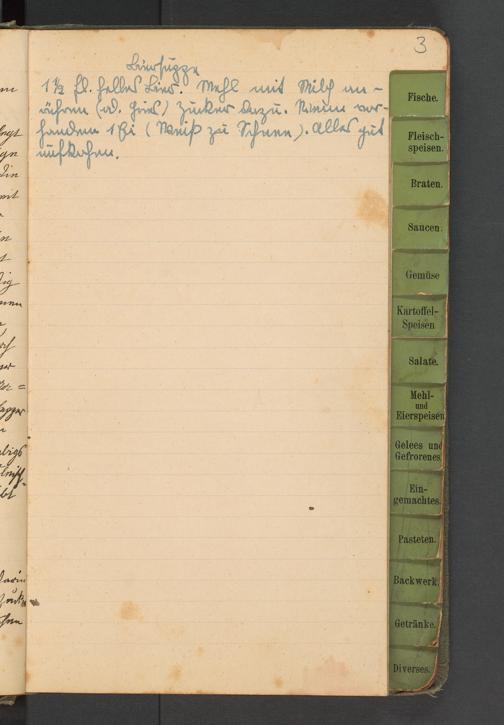 3
Biersuppe
1 ½ fl. helles Bier. Mehl mit Milch an-
rühren (od. Gries) Zucker dazu. Wenn vor-
handen 1 Ei (Weiß zu Schnee). Alles gut
aufkochen.
Fische.
Fleisch-
speisen.
Braten.
Saucen.
Gemüse
Kartoffel-
Speisen
Salate.
Mehl-
und
Eierspeisen
Gelees und
Gefrorenes
Ein-
gemachtes.
Pasteten.
Backwerk.
Getränke.
Diverses.